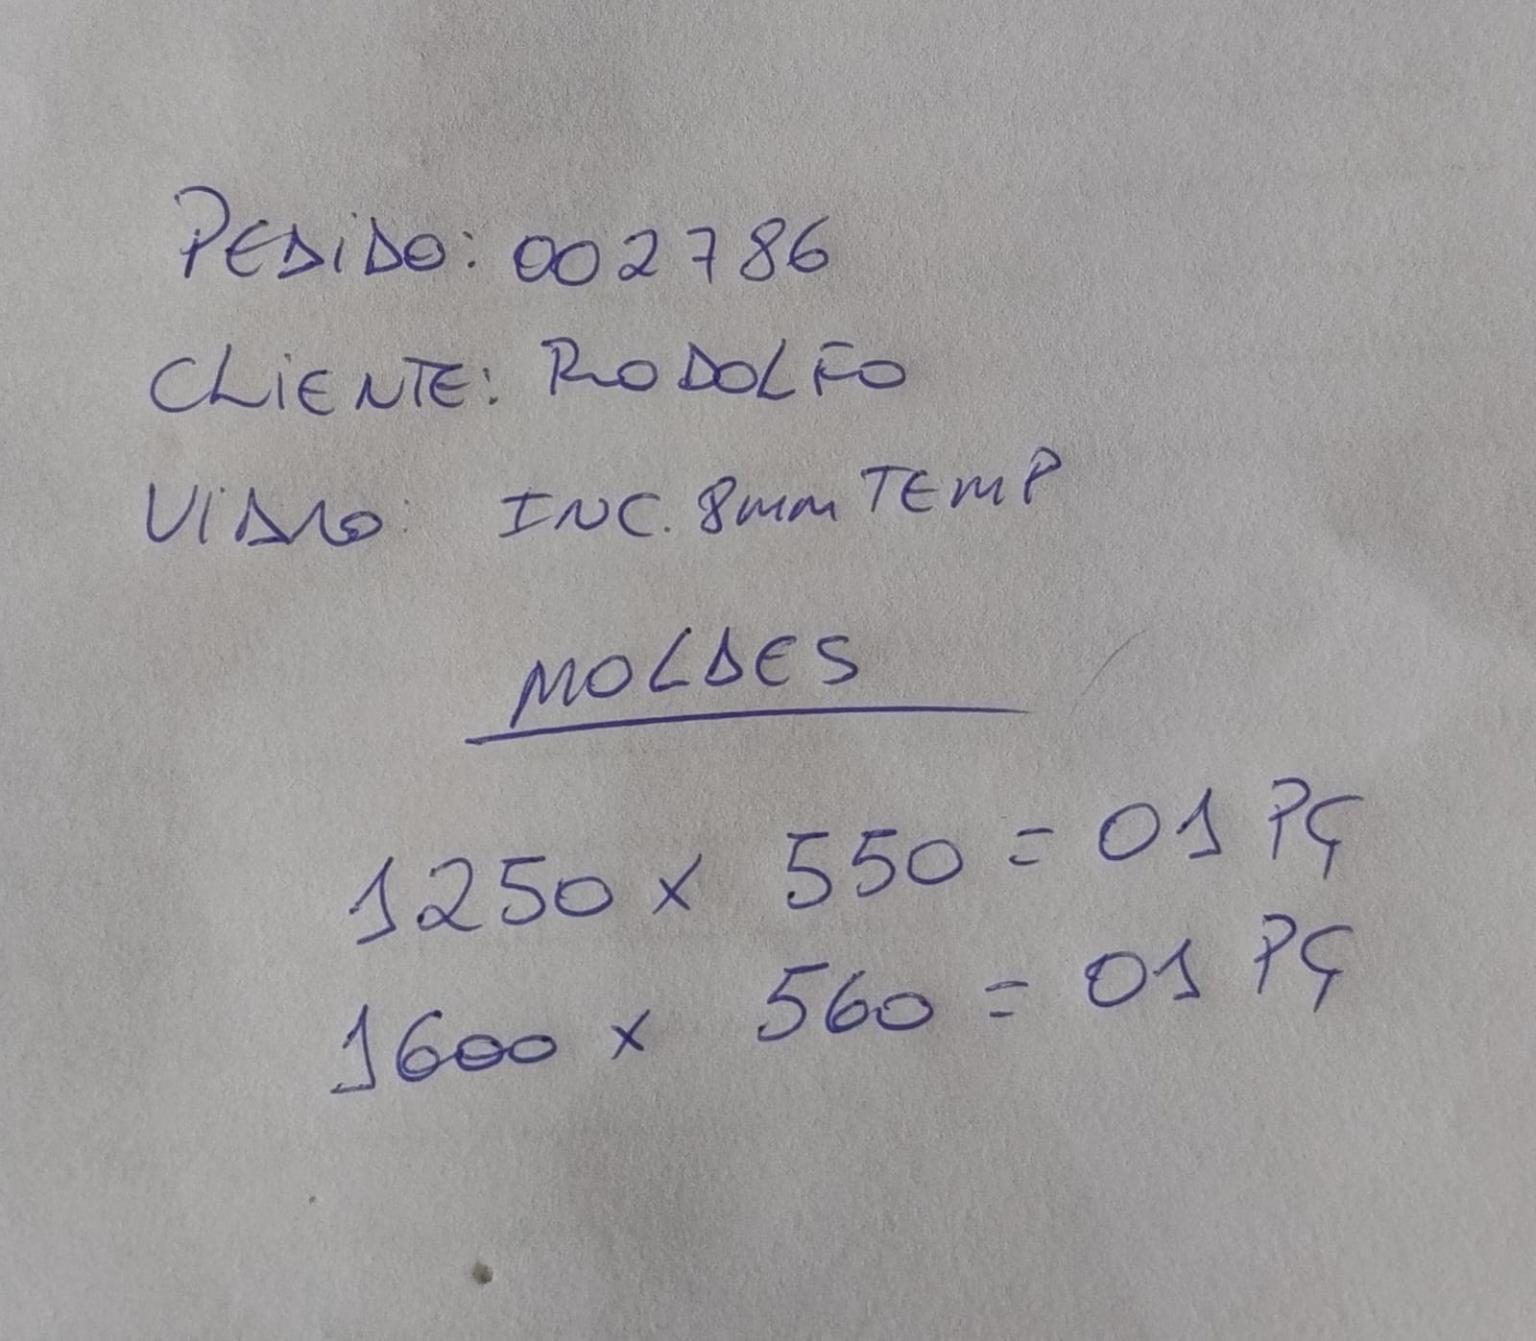 PEDIDO: 002786
CLIENTE: RODOLFO
VIDRO: INC. 8mm TEMP
MOLDES
1250 x 550 = 01 PÇ
1600 x 560 = 01 PÇ